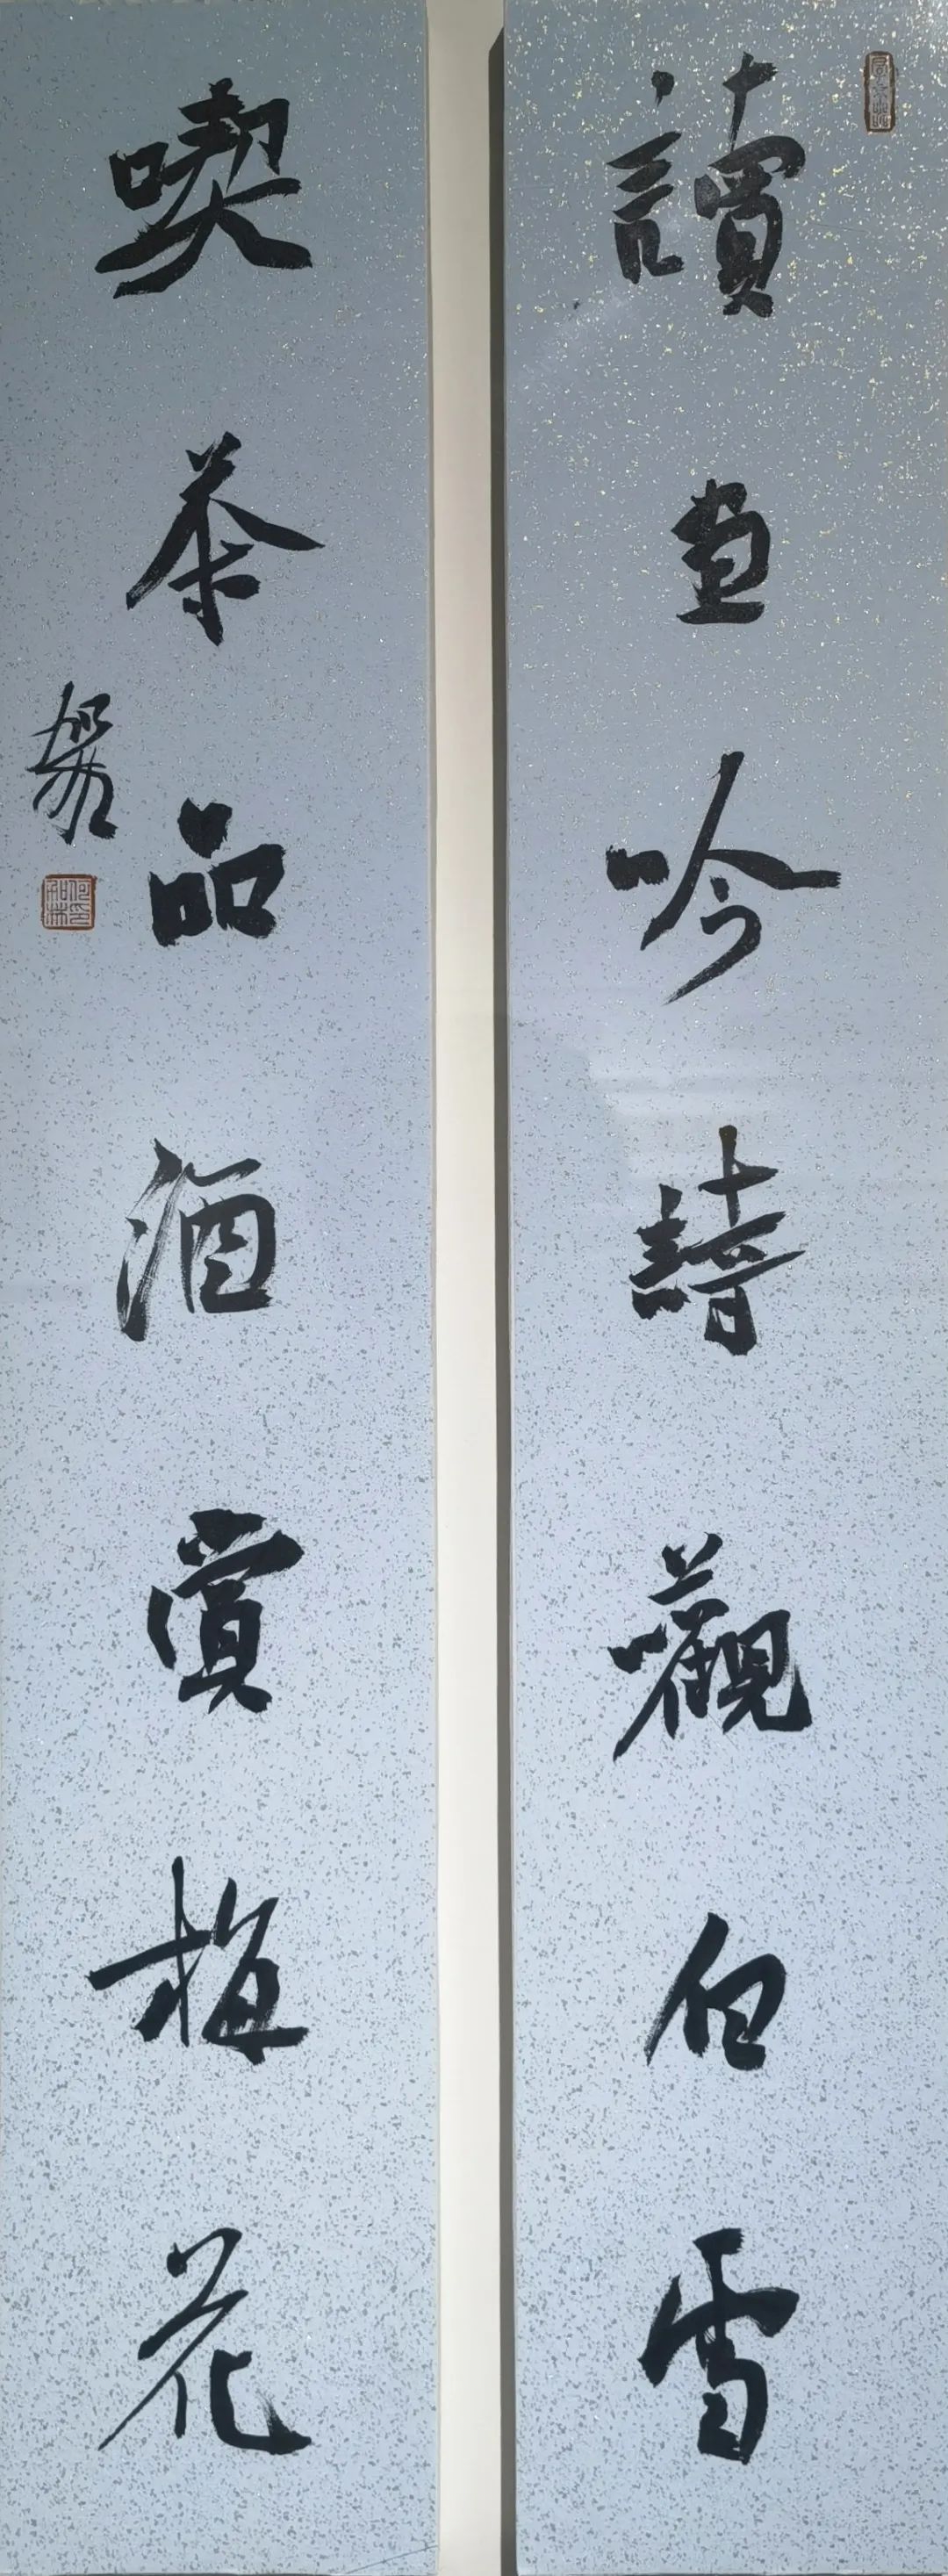 讀畫吟詩觀白雪
喫茶品酒賞梅花